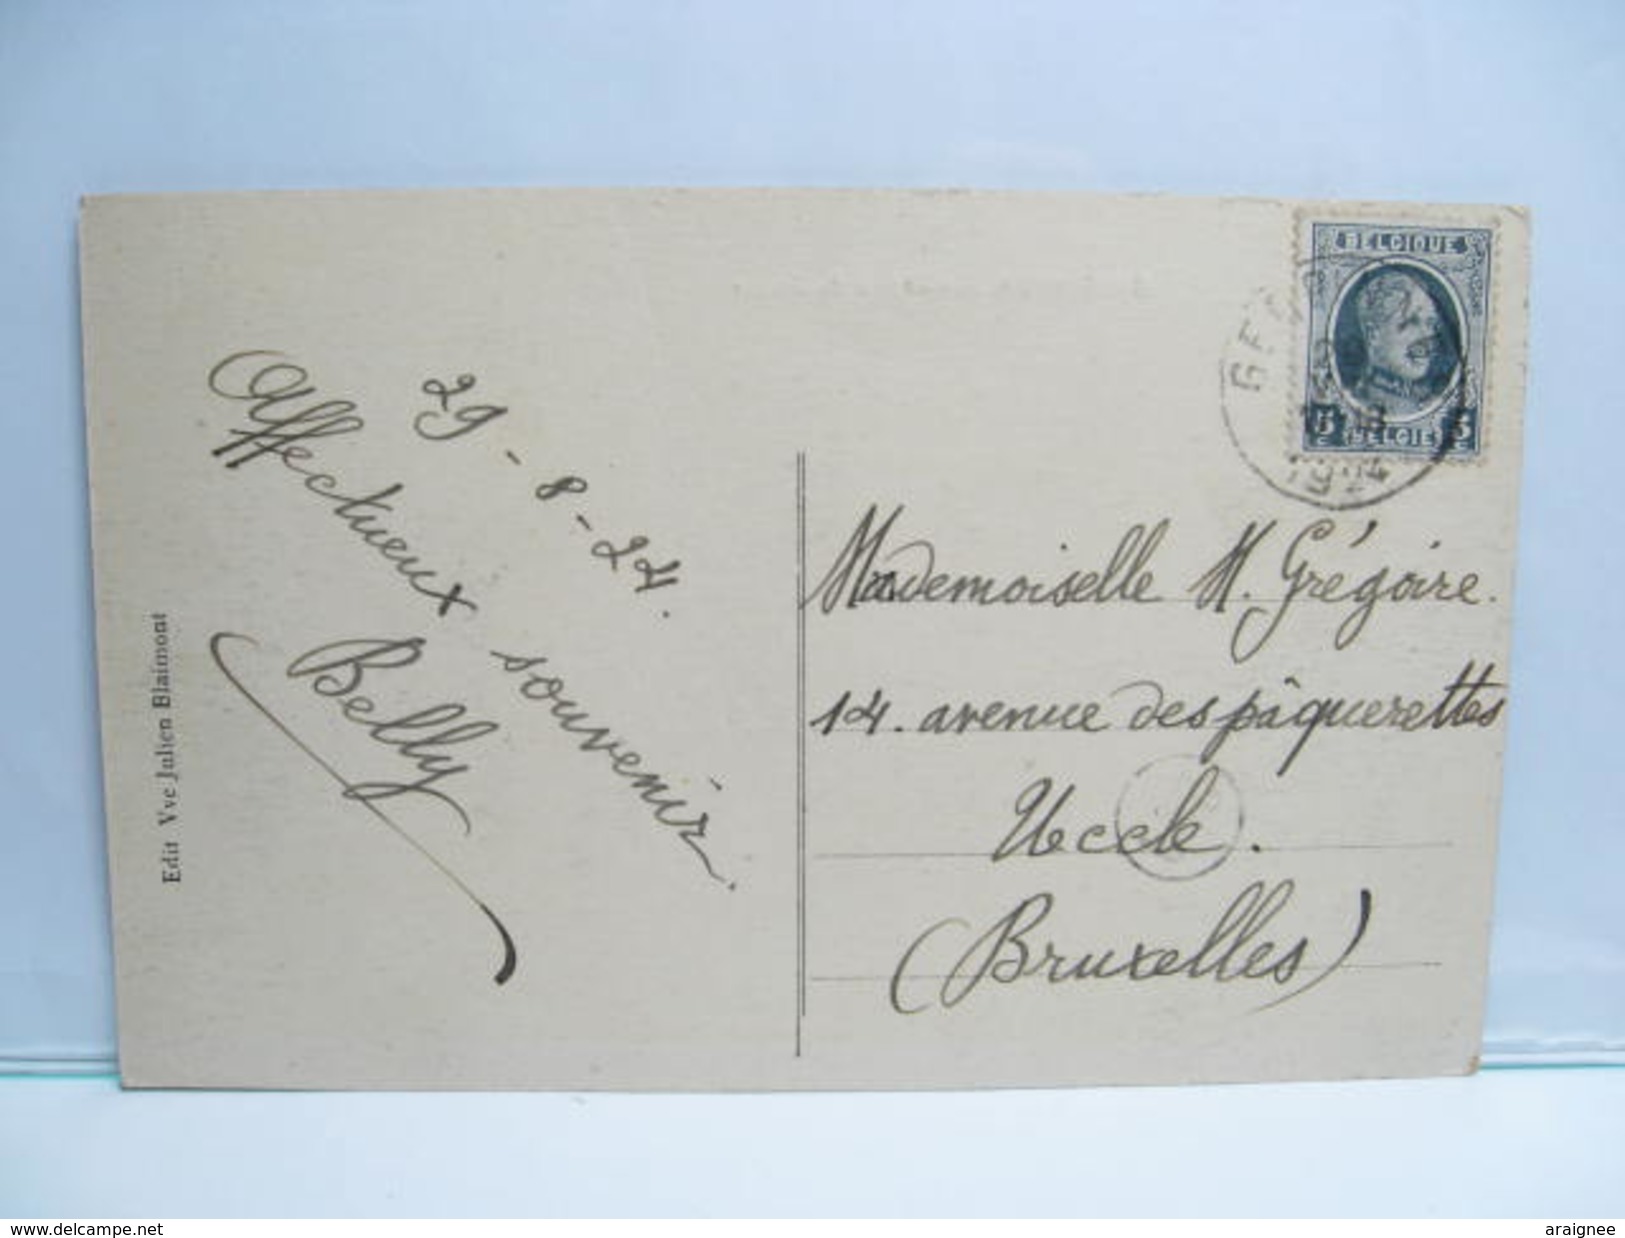 BELGIQUE
5 5
BELGIE
1924
29-8-24.
Affectueux souvenir.
Belly
Mademoiselle M. Grégoire.
14. avenue des pâquerettes
Uccle.
(Bruxelles)
Edit Vve Julien Blaimont
www.delcampe.net
araignee